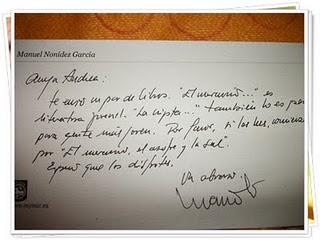 Manuel Nonídez García
Amiga Andrea:
te envío un par de libros. "El mercurio..." es
literatura juvenil. "La cripta..." también lo es pero
para gente más joven. Por favor, si los lees, comienza
por "El mercurio, el azufre y la sal".
Espero que los disfrutes.
Un abrazo: